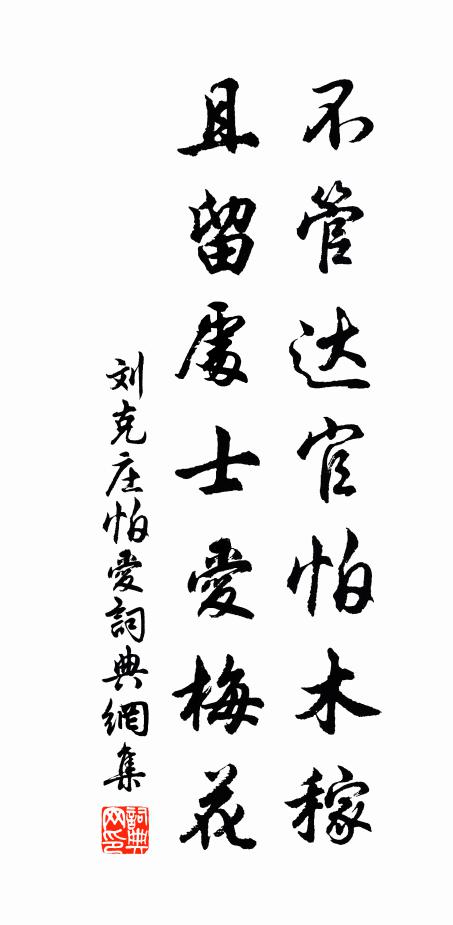 不管达官怕木稼
且留處士愛梅花
刘克庄怕愛詞典網集
詞典网印